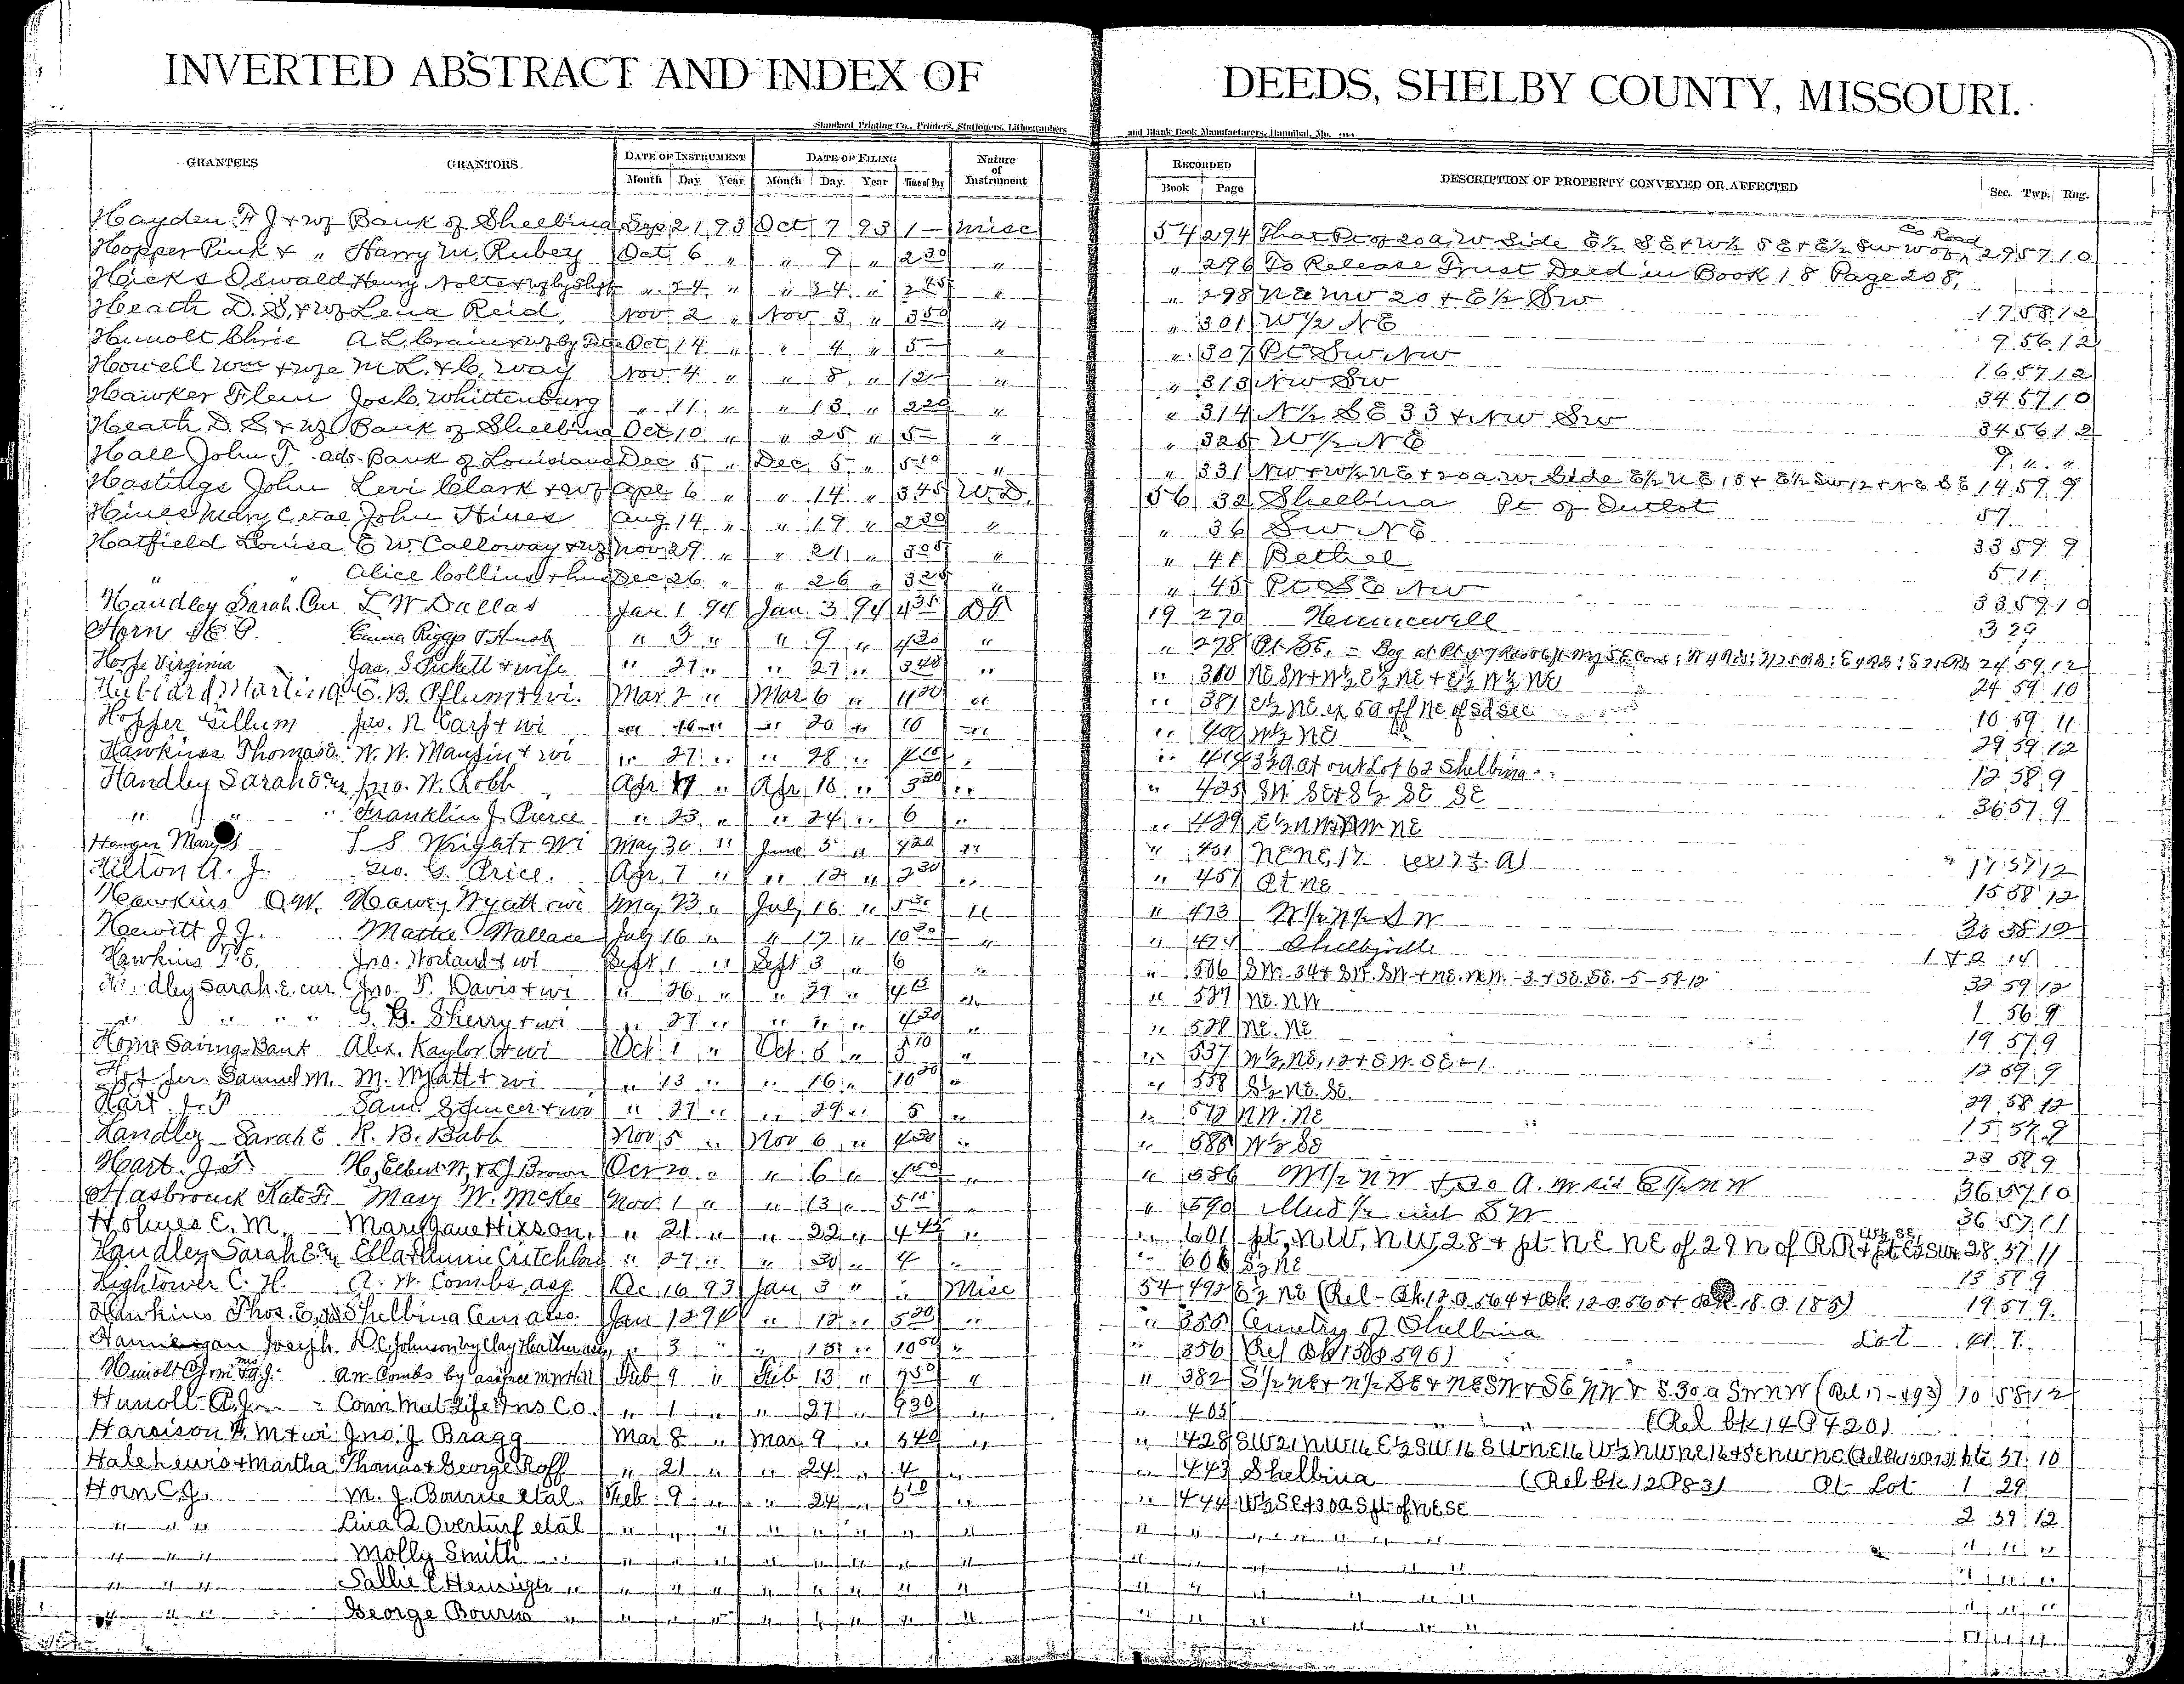 INVERTED ABSTRACT AND INDEX OF DEEDS, SHELBY COUNTY, MISSOURI.
Standard Printing Co., Printers, Stationers, Lithographers and Blank Book Manufacturers, Hannibal, Mo.
GRANTEES GRANTORS. DATE OF INSTRUMENT DATE OF FILING Nature of Instrument RECORDED DESCRIPTION OF PROPERTY CONVEYED OR AFFECTED Sec. Twp. Rng.
Month Day Year Month Day Year Time of Day Book Page
Hayden F J & wf Bank of Shelbina Sep 21 93 Oct 7 93 1 — Misc 54 294 That Pt of 20 a, W Side E½ SE & W½ SE & E½ SW W of Co Road 29 57 10
Hopper Pink & " Harry M. Rubey Oct 6 " " 9 " 2 30 " " 296 To Release Trust Deed in Book 18 Page 208,
Hicks Oswald Henry Nolte & wf by Shff " 24 " " 24 " 2 45 " " 298 NE NW 20 & E½ SW 17 58 12
Heath D. S. & wf Lena Reid, Nov 2 " Nov 3 " 3 50 " " 301 W½ NE 9 56 12
Hunolt Chris A L Crain & wf by Oct 14 " " 4 " 5 — " " 307 Pt SW NW 16 57 12
Howell Wm & wife M L. & C. Way Nov 4 " " 8 " 12 — " " 313 NW SW 34 57 10
Hawker Flem Jos C. Whittenburg " 11 " " 13 " 2 20 " " 314 N½ SE 33 & NW SW 34 56 12
Heath D. S & wf Bank of Shelbina Oct 10 " " 25 " 5 — " " 325 W½ NE 9 " "
Hall John T. ads Bank of Louisiana Dec 5 " Dec 5 " 5 10 " " 331 NW & W½ NE & 20 a. W. Side E½ NE 13 & E½ SW 12 & NE SE 14 59 9
Hastings John Levi Clark & wf Apl 6 " " 14 " 3 45 W.D. 56 32 Shelbina Pt of Outlot 57
Hines Mary C et al John Hines Aug 14 " " 19 " 2 30 " " 36 SW NE 33 59 9
Hatfield Louisa E W Calloway & wf Nov 29 " " 21 " 3 05 " " 41 Bethel 5 11
" " Alice Collins & hus Dec 26 " " 26 " 3 25 " " 45 Pt SE NW 33 59 10
Handley Sarah Cur L W Dallas Jan 1 94 Jan 3 94 4 35 DT 19 270 Hunnewell 3 29
Horn C. Emma Riggs & Husb " 3 " " 9 " 4 20 " " 278 Pt SE. 24 59 12
Virginia Jas. S Pickett & wife " 27 " " 27 " 3 40 " " 310 24 59 10
Hubbard Martin G. B. Pflum & wi. Mar 2 " Mar 6 " 4 30 " " 381 E½ NE ex 5a off NE of Sd Sec 10 59 11
Hopper Gillum Jno. N Carp & wi " 16 " " 20 " 10 " " 400 W½ NE 29 59 12
Hawkins Thomas E. W. W. Manzin & wi " 27 " " 28 " " 417 at outLot 62 Shelbina 12 58 9
Handley Sarah Cur Jno. W. Robb Apr 17 " Apr 18 " 3 30 " " 425 SW SE & S½ SE SE 36 57 9
" " Franklin J. Pierce " 23 " " 24 " 6 " " 429 E½ NW & NW NE
Hanger Mary S L S Wright & wi May 30 " June 5 " 4 20 " " 451 NENE, 17 17 57 12
Hilton A. J. Geo. G. Price. Apr 7 " " 12 " 2 30 " " 457 Pt NE 15 58 12
Hawkins O.W. Harvey Wyatt & wi May 23 " July 16 " 5 30 " " 473 W½ N½ SW 30 58 12
Hewitt J. J. Mattie Wallace July 16 " " 17 " 10 30 " " 474 Shelbyville 1 & 2 14
Hawkins T. E. Jno. Norland & wi Sept 1 " Sept 3 " 6 " " 506 SW. 34 & SW. SW & NE. NW. - 3 & SE. SE. - 5 - 58-12 33 59 12
dley Sarah. E. cur Jno. P. Davis & wi " 26 " " 29 " " " 527 NE. NW 1 56 9
" " " G. B. Sherry & wi " 27 " " " " 4 30 " " 528 NE. NE 19 57 9
Home Savings Bank Alex. Kaylor & wi Oct 1 " Oct 8 " 3 10 " " 537 W½, NE, 12 & SW. SE - 1. 12 59 9
Samuel M. M. Wyatt & wi " 13 " " 16 " 10 30 " " 558 S½ NE. SE. 29 58 12
Hart J. P Sam. Spencer & wi " 27 " " 29 " 5 " " 572 NW. NE 15 57 9
Handley Sarah E R. B. Babb Nov 5 " Nov 6 " 4 30 " " 585 W½ SE 23 58 9
Hart Jos Brown Oct 20 " " 6 " " " 586 W½ NW & 30 A. W Sid E½ NW 36 57 10
Hasbrouck Kate F. Mary W. McKee Nov. 1 " " 13 " 5 15 " " 590 Und ½ int SW 36 57 11
Holmes E. M. Mary Jane Hixson, " 21 " " 22 " 4 45 " " 601 pt, NW, NW, 28 & pt NE NE of 29 N of R.R 28 57 11
Handley Sarah E Cur Ella & Annie Critchlow " 27 " " 30 " 4 " " 606 S½ NE 15 57 9
Hightower C. H. A. W. Combs asg Dec 16 93 Jan 3 " " Misc 54 492 E½ NE (Rel - Bk. 12 P 564 & Bk 12 P. 565 & Bk 18. P. 185) 19 57 9.
Hawkins Thos. E. Shelbina Cem asso. Jan 12 94 " 12 " 5 20 " " 355 Cemetery of Shelbina Lot 41 7.
Hannegan Joseph. D.C. Johnson by Clay Heather adm " 3 " " 15 " 10 50 " " 356 (Rel Bk 13 P 596)
Hunolt Chris & A.J. A.W. Combs by asignee Feb 9 " Feb 13 " " " 382 S½ NE & N½ SE & NE SW & SE NW & S. 30 a SW NW (Rel 17 - 493) 10 58 12
Hunolt A.J. Conn Mut Life Ins Co. " 1 " " 27 " 9 30 " " 405 " " (Rel bk 14 P 420)
Harrison F. M & wi Jno. J Bragg Mar 8 " Mar 9 " 3 40 " " 428 SW 21 NW 16 E½ SW 16 SW NE 16 W½ NW NE 16 & SE NW NE 57 10
Hale Lewis & Martha Thomas & George Roff " 21 " " 24 " 4 " " 443 Shelbina (Rel bk 12 P 83) Pt Lot 1 29
Horn C.J. M. J. Bourne et al. Feb 9 " " 24 " 5 10 " " 444 W½ SE & 30 a S pt of NE SE 2 59 12
" " " Lina A Overturf et al " " " " " " " " " " " " " " " " "
" " " Molly Smith " " " " " " " " " " " " " " " " "
" " " Sallie E Hennigh " " " " " " " " " " " " " " " " "
" " " George Bourne " " " " " " " " " " " " " " " " "